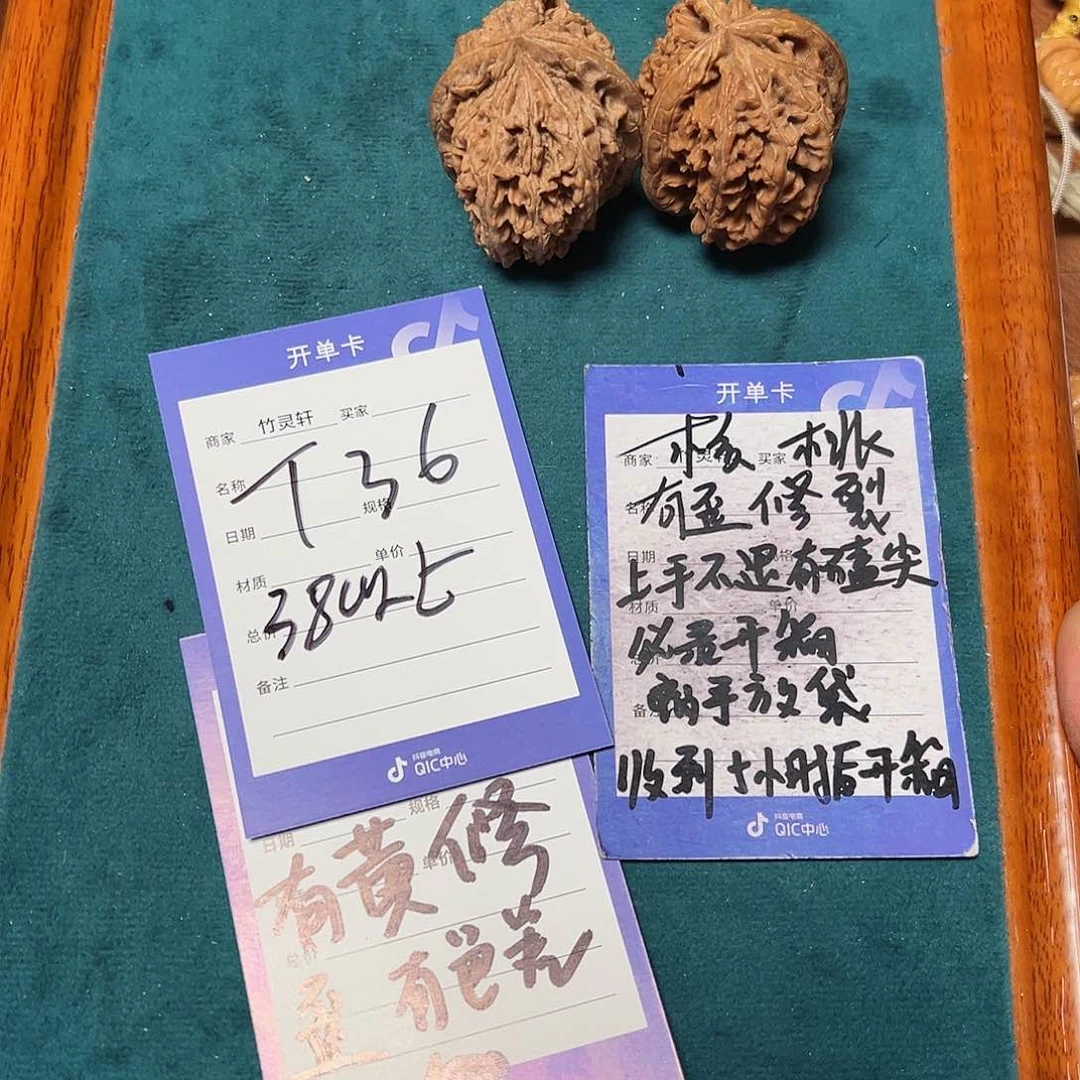 开单卡
商家 竹灵轩 买家
名称
T36
日期 规格
材质 单价
38以上
总价
备注
抖音电商
QIC中心
日期 规格
单价
有黄修
总价
歪 有色差
开单卡
商家 买家
核桃
有歪修裂
日期 规格
上手不退有磕尖
材质 单价
必录开箱
备注
收到 小时后开箱
抖音电商
QIC中心